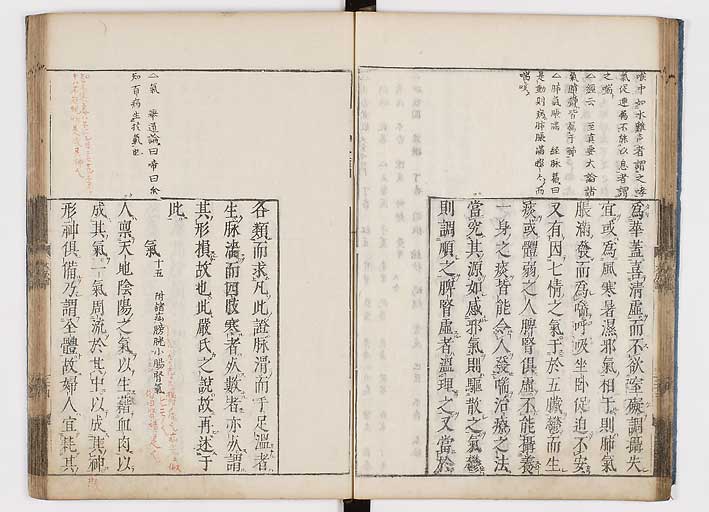 喉中如水雞声者謂之哮
氣促連属不能以息者謂
之喘
△經云 至真要大論諸
氣膹鬱皆属于肺
△肺氣脹滿 経脉篇曰
是動則病肺脹滿膨々而
喘咳
為華蓋喜清虚而不欲窒礙調攝失
宜或為風寒暑濕邪氣相干則肺氣
脹滿發而為喘呼吸坐卧促迫不安
又有因七情之氣干於五臟鬱而生
痰或體弱之人脾腎俱虚不能攝養
一身之痰皆能令人發喘治療之法
當究其源如感邪氣則驅散之氣鬱
則調順之脾腎虚者温理之又當於
△氣 舉痛論曰帝曰余
知百病生於氣也
各類而求凡此證脉滑而手足温者
生脉濇而四肢寒者死數者亦死謂
其形損故也此嚴氏之説故再述于
此
氣 十五 附諸疝膀胱小腸腎氣
人禀天地陰陽之氣以生藉血肉以
成其
氣一氣周流於其中以成其神
形神俱備乃謂全體故婦人宜耗其